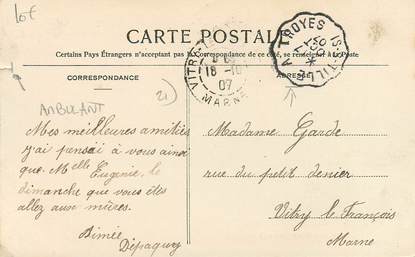 lot
CARTE POSTALE
Certains Pays Étrangers n'acceptent pas la correspondance de ce côté, se renseigner à la Poste
CORRESPONDANCE
ADRESSE
TROYES
VITRY-
18 -10
07
MARNE
AMBULANT
21
Mes meilleures amitiés
j'ai pensai à vous ainsi
que Melle Eugenie, le
dimanche que vous êtes
allez aux mûres.
Aimée
Dépaquy
Madame Garde
rue du petit denier
Vitry le François
Marne